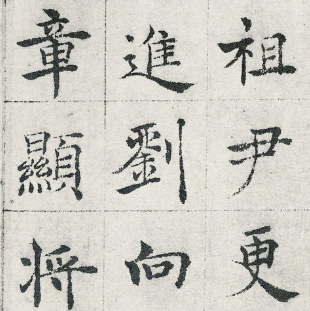 祖尹更
進劉向
章顯将